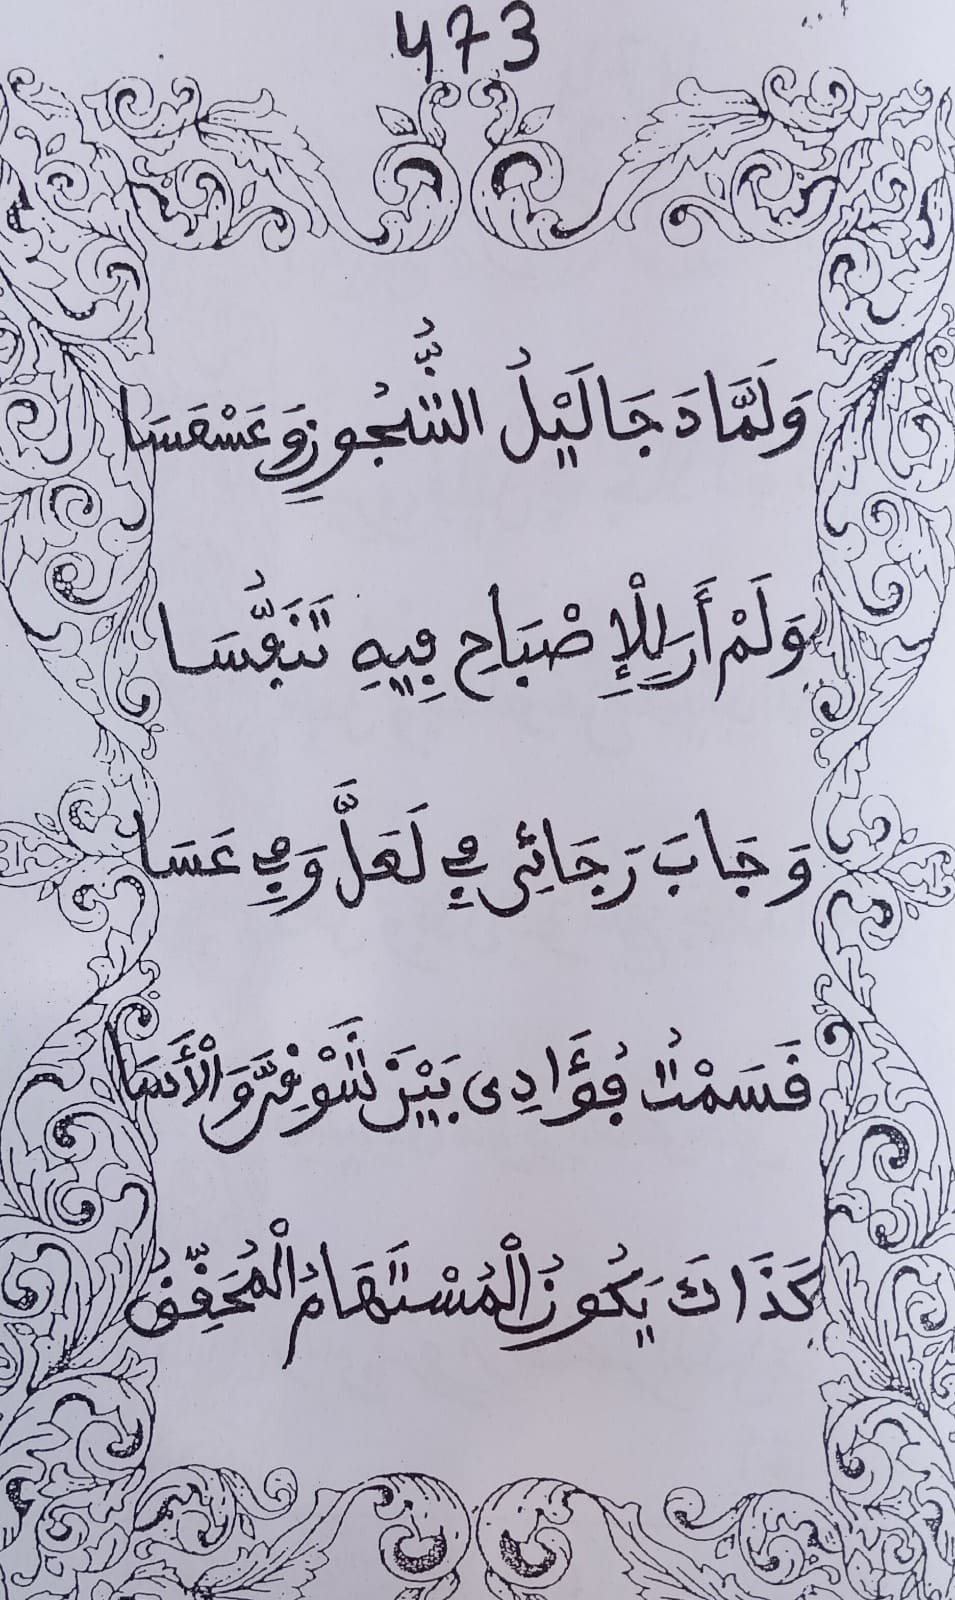 473
وَلَمَّا دَجَا لَيْلُ الشُّجُونِ وَعَسْعَسَا
وَلَمْ أَرَ لِلْإِصْبَاحِ فِيهِ تَنَفُّسَا
وَخَابَ رَجَائِى فِي لَعَلَّ وَفِي عَسَا
قَسَمْتُ فُؤَادِى بَيْنَ شَوْقٍ وَالْأَسَا
كَذَاكَ يَكُونُ الْمُسْتَهَامُ الْمُحَقِّقُ